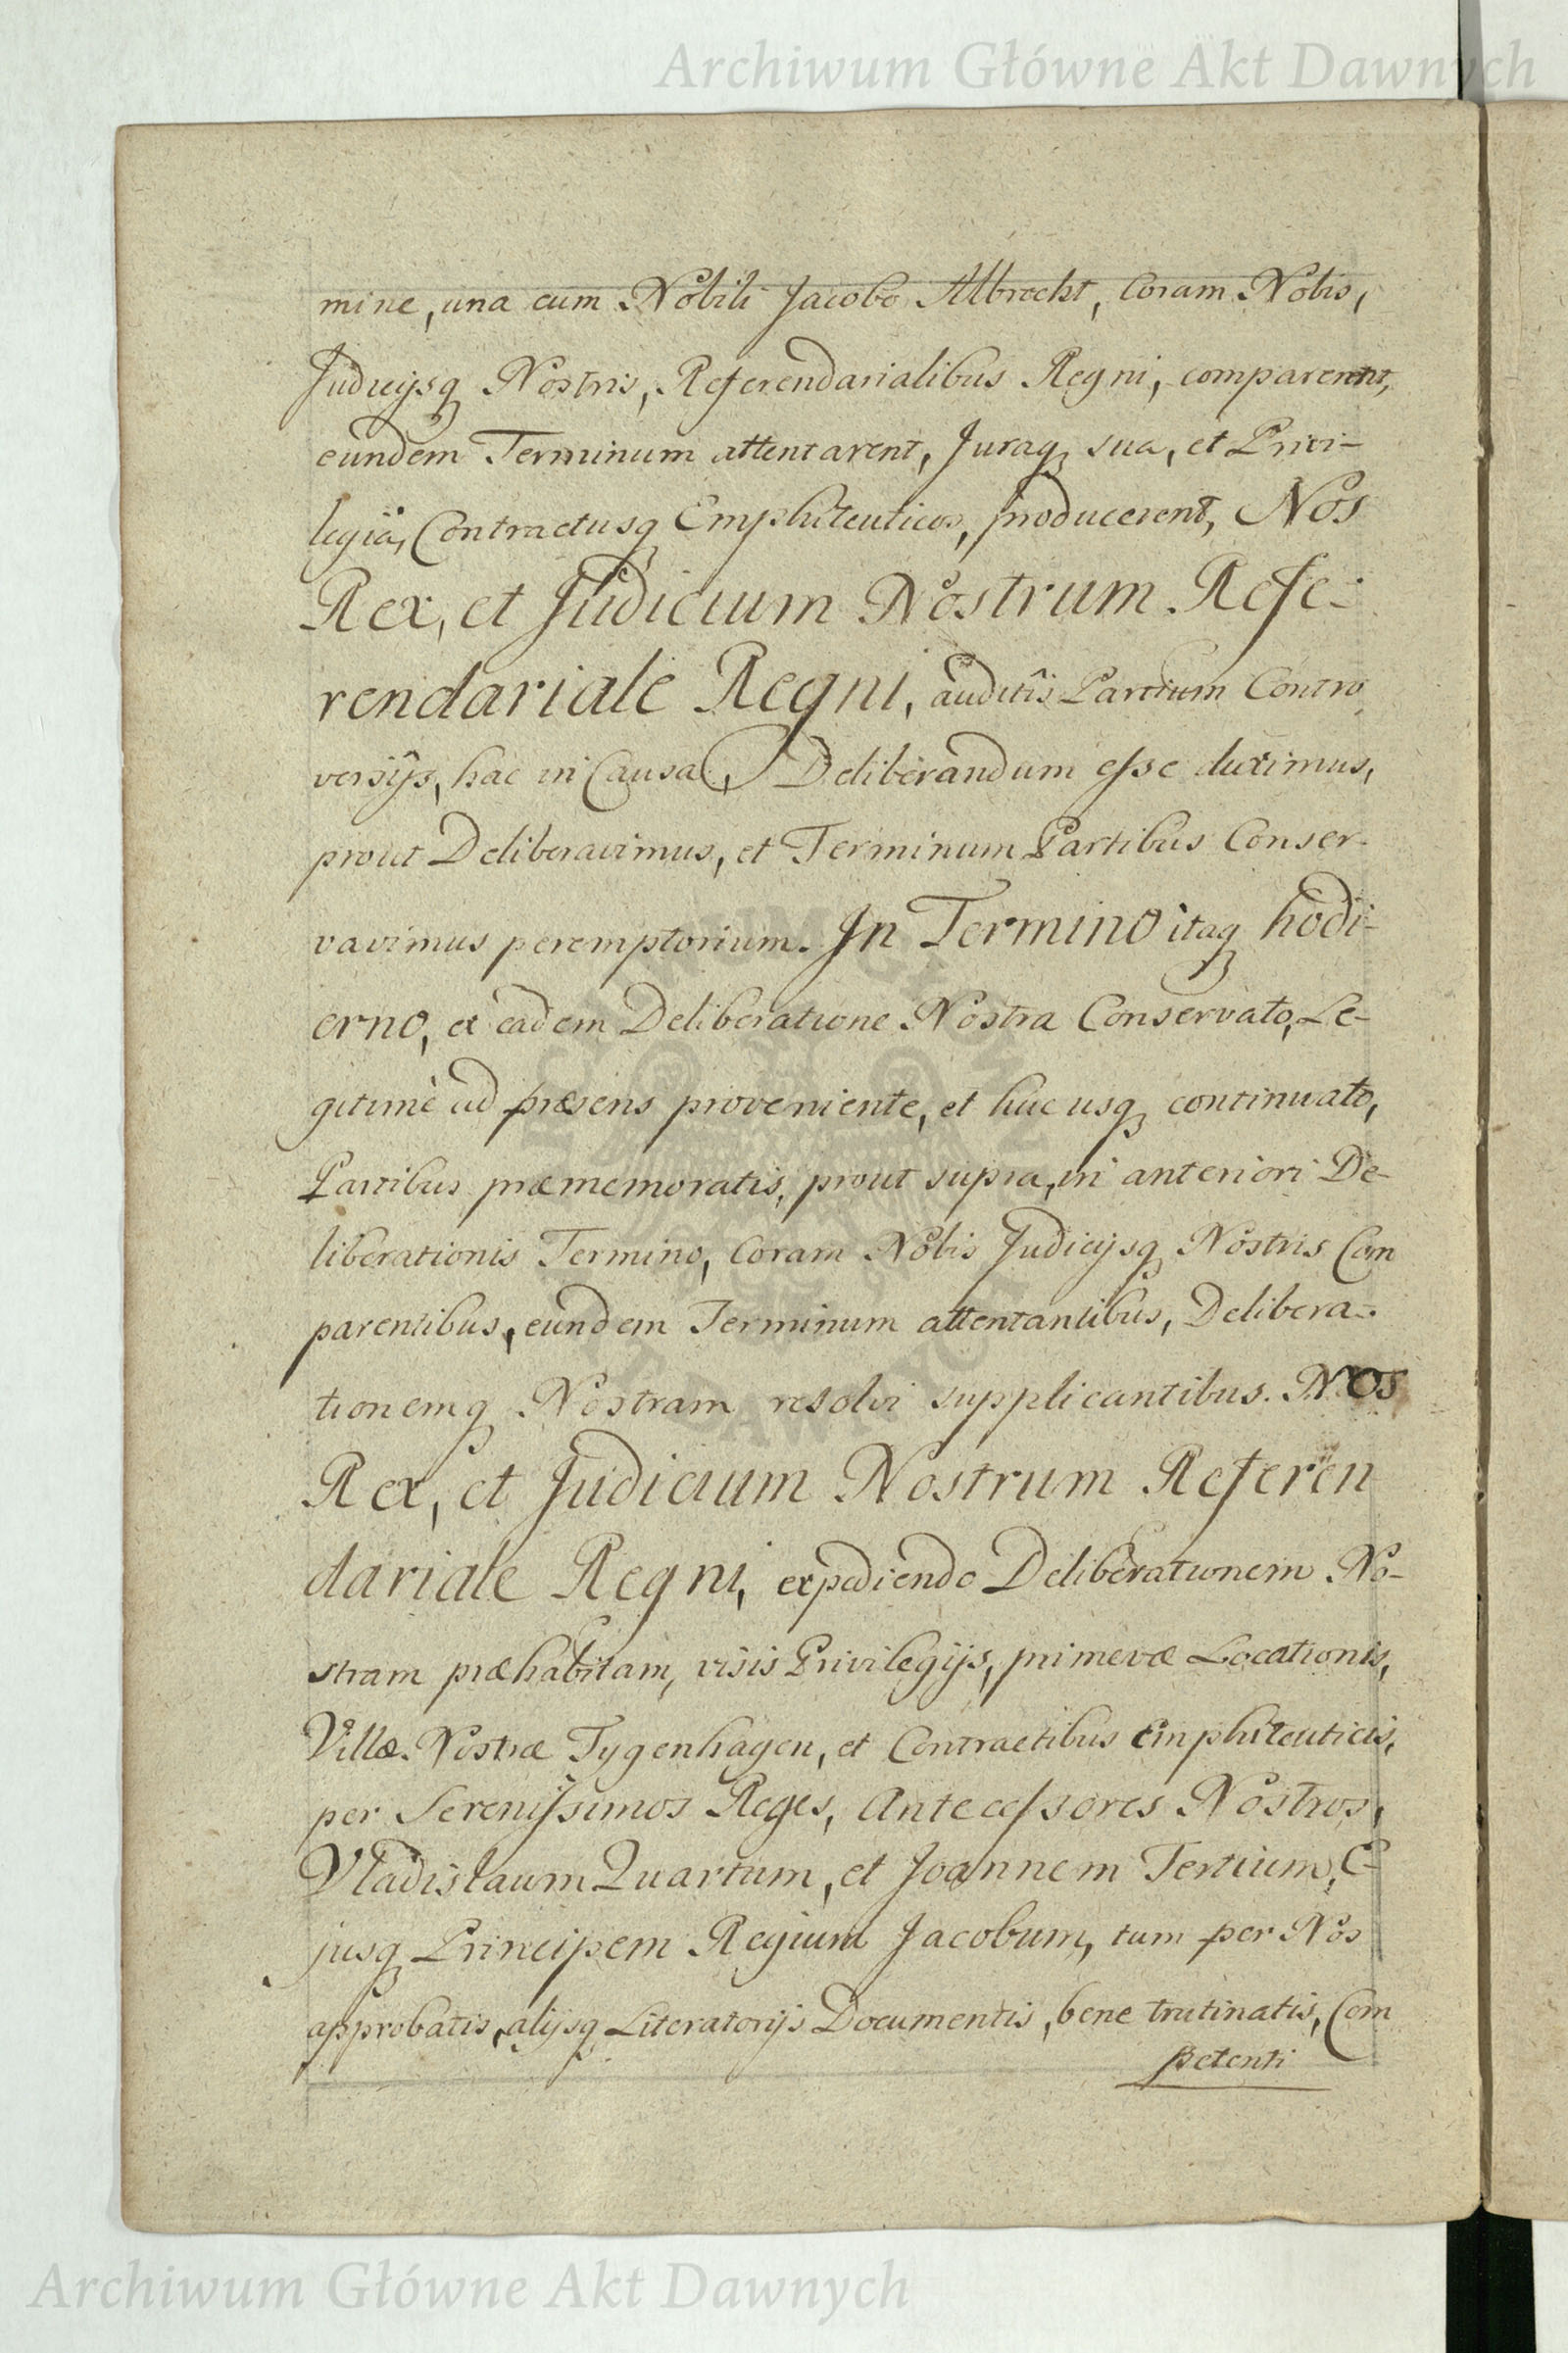 Archiwum Główne Akt Dawnych
mine, una cum Nobili Jacobo Albrecht, Coram Nobis,
Judicijsq Nostris, Referendarialibus Regni, comparerent,
eundem Terminum attentarent, Juraq sua, et Privi-
legia, Contractusq Emphiteuticos, producerent, Nos
Rex, et Judicium Nostrum Refe-
rendariale Regni, auditis Partium Contro
versijs, hac in Causa, Deliberandum esse duximus,
prout Deliberavimus, et Terminum Partibus Conser-
vavimus peremptorium. In Termino itaq hodi-
erno, ex eadem Deliberatione Nostra Conservato, Le-
gitimè ad præsens proveniente, et huc usq continuato,
Partibus præmemoratis, prout supra, in anteriori De-
liberationis Termino, Coram Nobis Judicijsq Nostris Com
parentibus, eundem Terminum attentantibus, Delibera-
tionemq Nostram resolvi supplicantibus. NOS
Rex, et Judicium Nostrum Referen
dariale Regni, expediendo Deliberationem No-
stram præhabitam, visis Privilegijs, primevæ Locationis,
Villæ Nostræ Tygenhagen, et Contractibus Emphiteuticis,
per Serenissimos Reges, Antecessores Nostros,
Vladislaum Quartum, et Joannem Tertium, E-
jusq Principem Regium Jacobum, tum per Nos
approbatis, alijsq Literatorijs Documentis, bene trutinatis, Com
petenti
Archiwum Główne Akt Dawnych